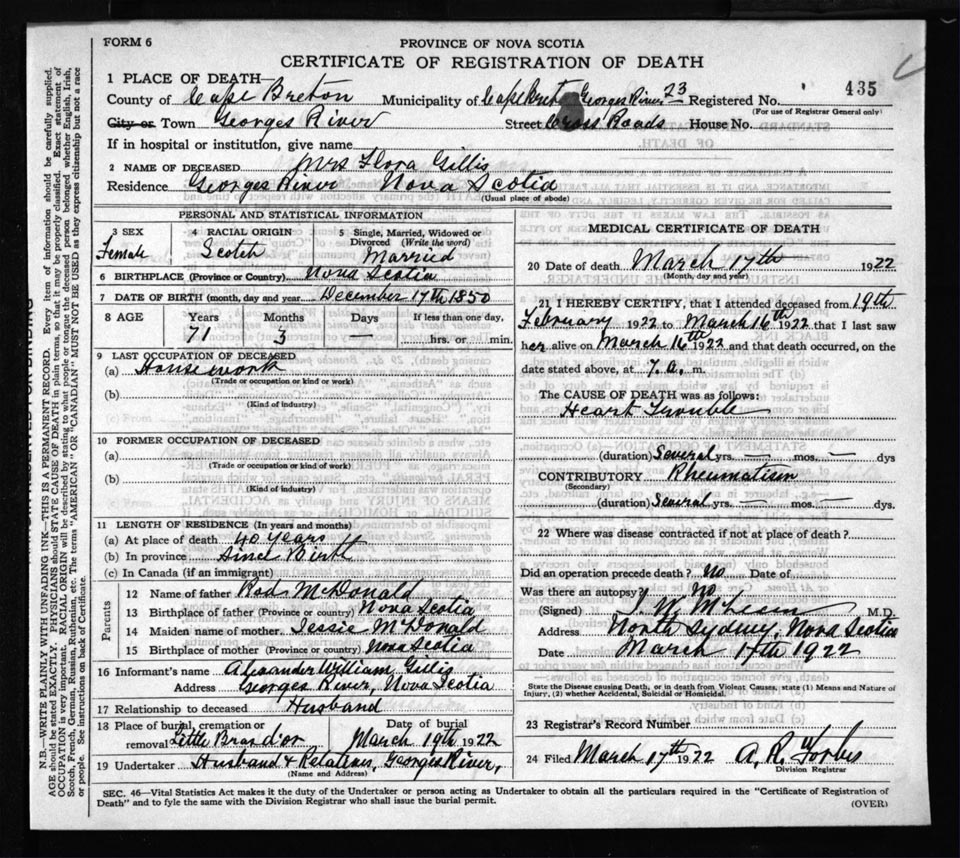 FORM 6
PROVINCE OF NOVA SCOTIA
CERTIFICATE OF REGISTRATION OF DEATH
1 PLACE OF DEATH
435
County of Cape Breton Municipality of Cape Bret Georges River 23 Registered No.
(For use of Registrar General only)
City or Town Georges River Street Cross Roads House No.
If in hospital or institution, give name
2 NAME OF DECEASED Mrs Flora Gillis
Residence Georges River Nova Scotia
(Usual place of abode)
PERSONAL AND STATISTICAL INFORMATION
3 SEX Female
4 RACIAL ORIGIN Scotch
5 Single, Married, Widowed or Divorced (Write the word) Married
6 BIRTHPLACE (Province or Country) Nova Scotia
7 DATE OF BIRTH (month, day and year) December 17th 1850
8 AGE Years Months Days If less than one day,
71 3 — hrs. or min.
9 LAST OCCUPATION OF DECEASED
(a) Housework
(Trade or occupation or kind or work)
(b)
(Kind of industry)
10 FORMER OCCUPATION OF DECEASED
(a)
(Trade or occupation or kind of work)
(b)
(Kind of Industry)
11 LENGTH OF RESIDENCE (In years and months)
(a) At place of death 40 years
(b) In province Since Birth
(c) In Canada (if an immigrant)
Parents
12 Name of father Rod. McDonald
13 Birthplace of father (Province or country) Nova Scotia
14 Maiden name of mother Jessie McDonald
15 Birthplace of mother (Province or country) Nova Scotia
16 Informant's name Alexander William Gillis
Address Georges River, Nova Scotia
17 Relationship to deceased Husband
18 Place of burial, cremation or Date of burial
removal Little Brand'or March 19th 1922
19 Undertaker Husband & Relatives, Georges River,
(Name and Address)
MEDICAL CERTIFICATE OF DEATH
20 Date of death March 17th 1922
(Month, day and year)
21 I HEREBY CERTIFY, that I attended deceased from 19th
February 1922 to March 16th 1922 that I last saw
her alive on March 16th 1922 and that death occurred, on the
date stated above, at 7. a. m.
The CAUSE OF DEATH was as follows:
Heart Trouble
(duration) Several yrs. — mos. — dys
CONTRIBUTORY Rheumatism
(Secondary)
(duration) Several yrs. — mos. — dys.
22 Where was disease contracted if not at place of death?
Did an operation precede death? No Date of
Was there an autopsy? No
(Signed) M.D.
Address North Sydney, Nova Scotia
Date March 17th 1922
State the Disease causing Death, or in death from Violent Causes, state (1) Means and Nature of
Injury, (2) whether Accidental, Suicidal of Homicidal.
23 Registrar's Record Number
24 Filed March 17th 1922 A. R. Forbes
Division Registrar
SEC. 46—Vital Statistics Act makes it the duty of the Undertaker or person acting as Undertaker to obtain all the particulars required in the "Certificate of Registration of
Death" and to fyle the same with the Division Registrar who shall issue the burial permit.
(OVER)
N.B.—WRITE PLAINLY WITH UNFADING INK—THIS IS A PERMANENT RECORD. Every item of information should be carefully supplied.
AGE should be stated EXACTLY. PHYSICIANS should STATE CAUSE OF DEATH in plain terms, so that it may be properly classified. Exact statement of
OCCUPATION is very important. RACIAL ORIGIN will be described by stating to what people or tongue the deceased person belonged whether English, Irish,
Scotch, French, German, Russian, Ruthenian, etc. The terms "AMERICAN" or "CANADIAN" MUST NOT BE USED as they express citizenship but not a race
or people. See instructions on back of Certificate.